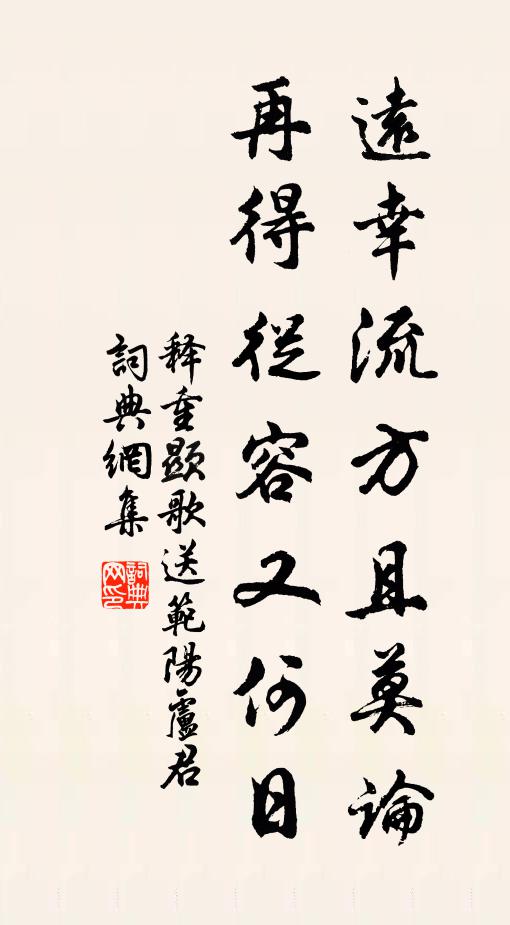 遠幸流方且莫論
再得從容又何日
释重顯歌送範陽盧君
詞典網集
詞典网印